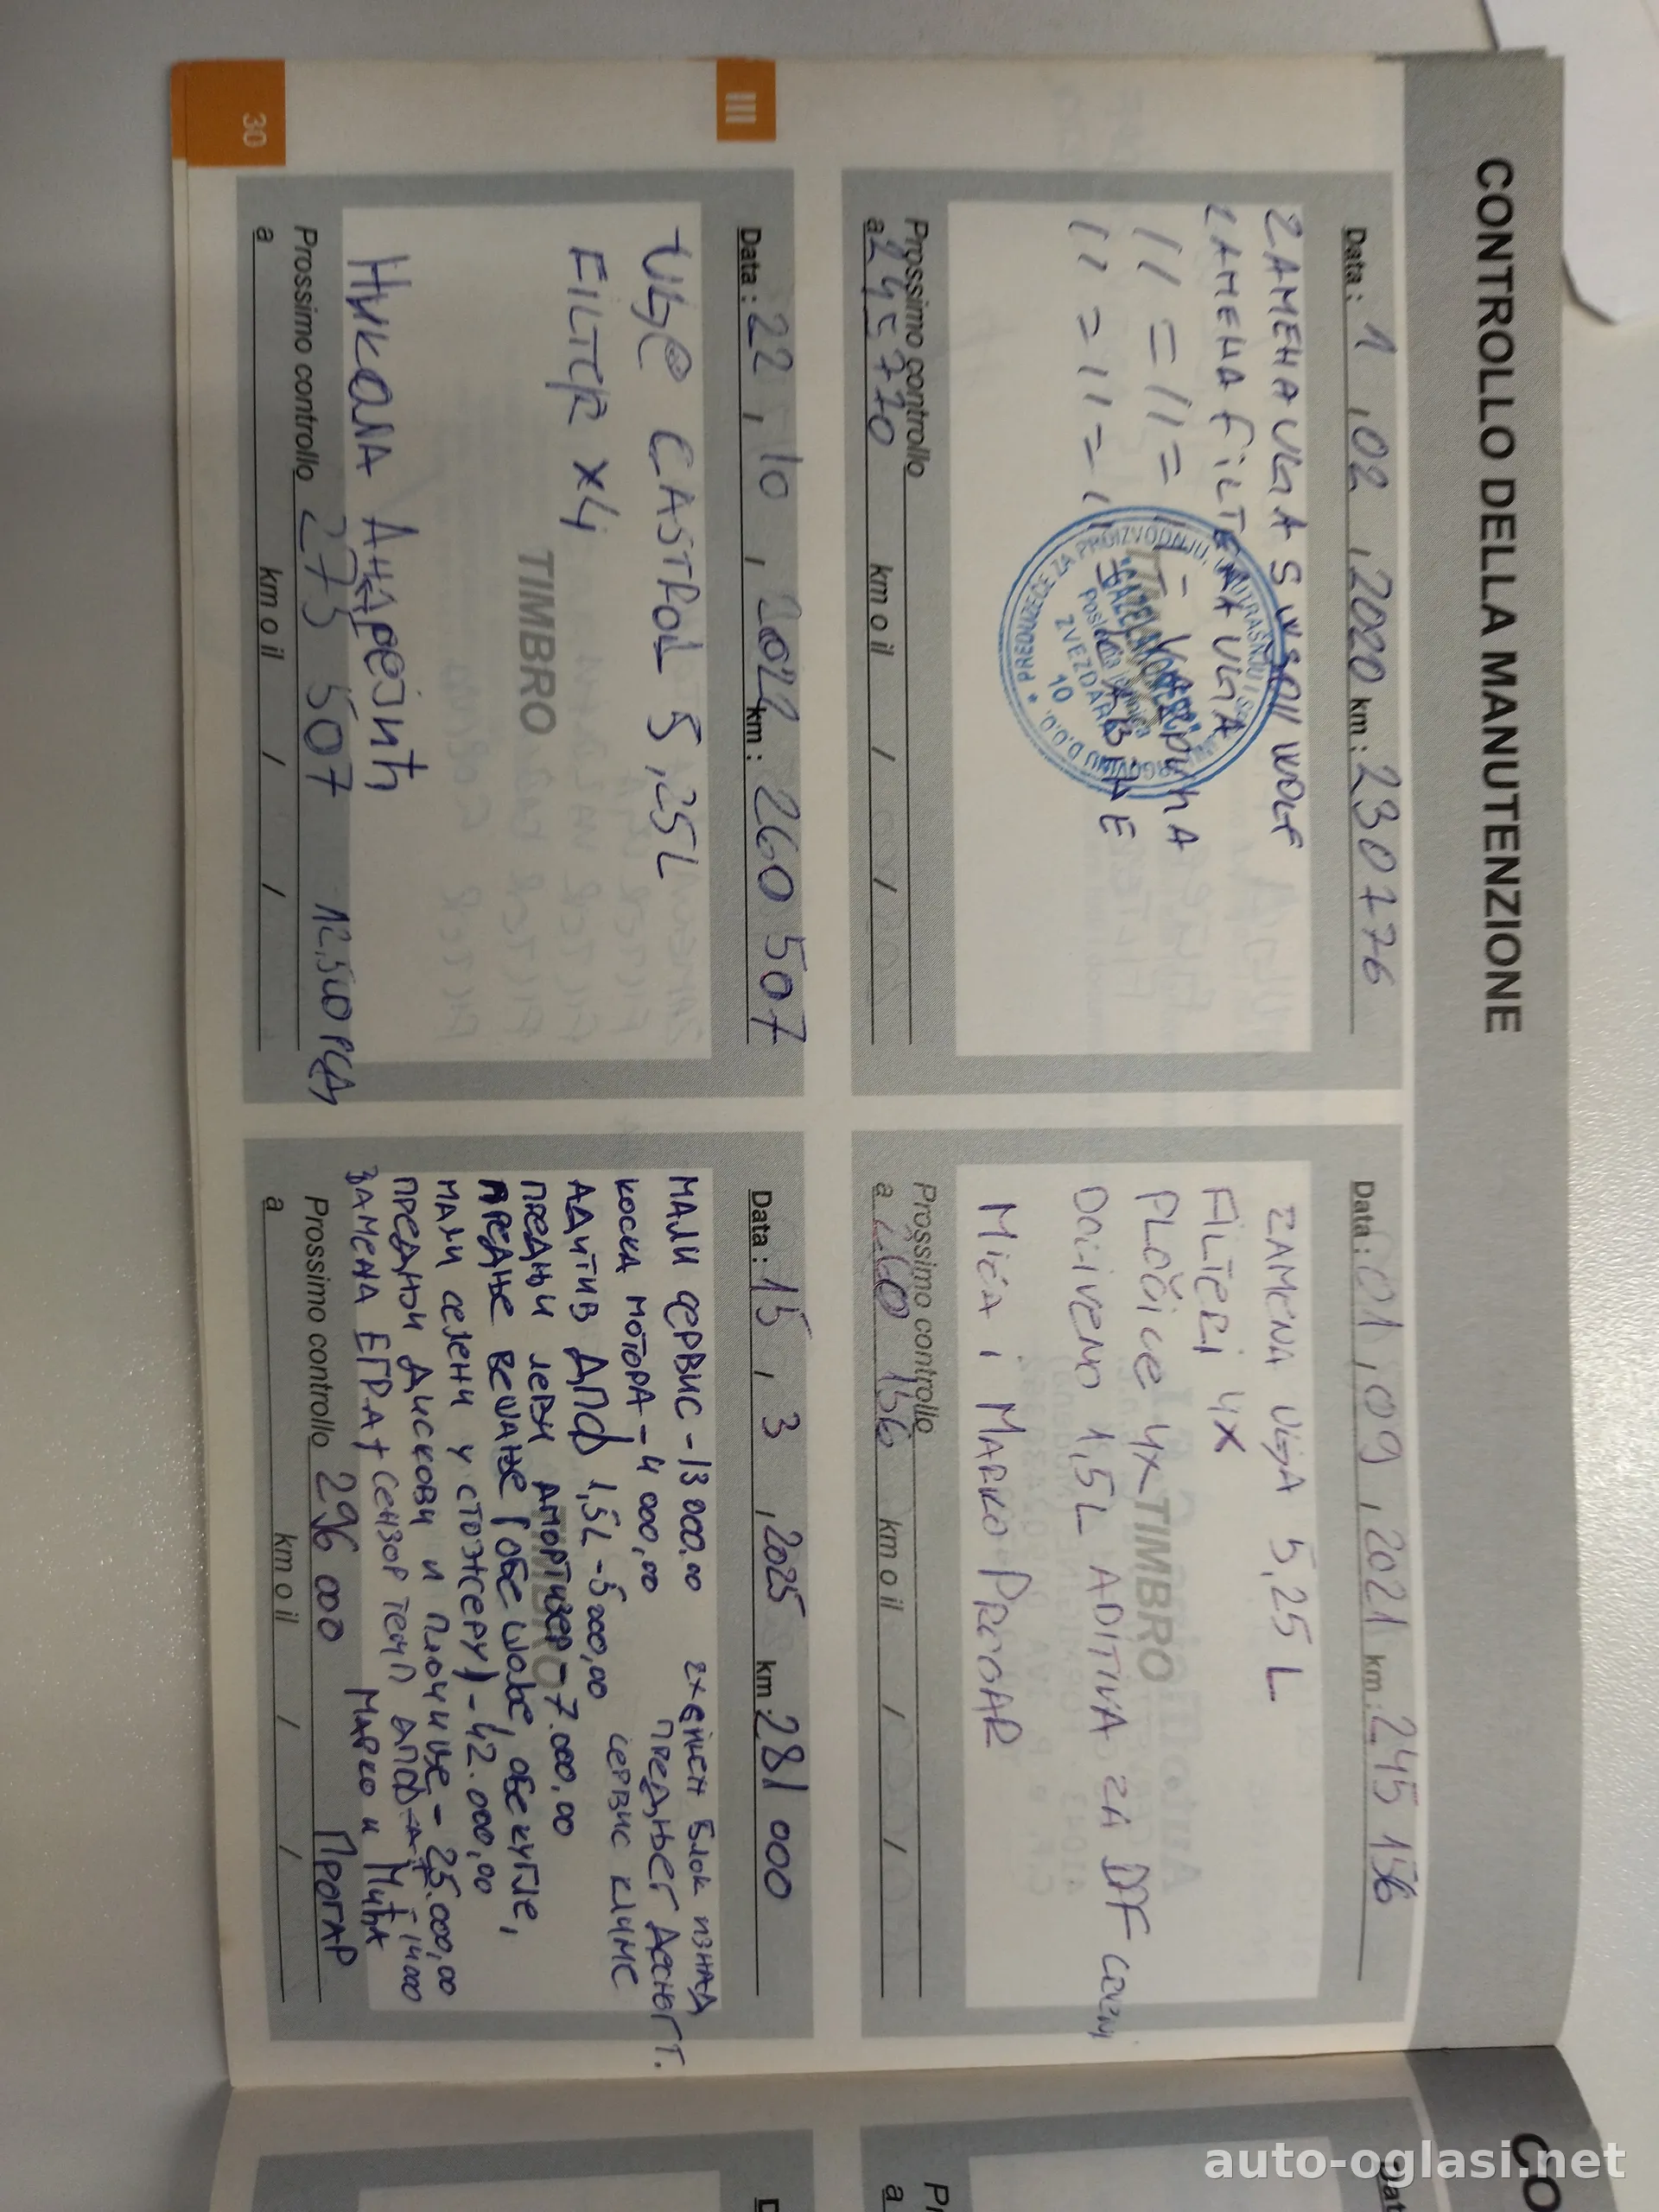 CONTROLLO DELLA MANUTENZIONE
Data: 1, 02, 2020 km: 230776
ZAMENA ULJA 5W30 II WOLF
ZAMENA FILTERA ULJA
11 = 11 =
11 = 11 = KABINE
PREDUZEĆE ZA PROIZVODNJU,
D.O.O.
ZVEZDARA
10
Prossimo controllo
a 245770 km o il / /
Data: 01, 09, 2021 km: 245 156
ZAMENA ULJA 5,25 L
FILTERI 4X
PLOČICE 4X
TIMBRO
DOLIVENO 1,5L ADITIVA ZA DPF
MIĆA I MARKO PROGAR
Prossimo controllo
a 260 156 km o il / /
III
Data: 22, 10, 2022 km: 260 507
ULJE CASTROL 5,25L
FILTER X4
TIMBRO
НИКОЛА АНДРЕЈИЋ
Prossimo controllo 273 507 12,500 РСД
a km o il / /
Data: 15, 3, 2025 km: 281 000
МАЛИ СЕРВИС - 13 000,00
КОСКА МОТОРА - 4 000,00
АДИТИВ ДПФ 1,5L - 5 000,00
ПРЕДЊИ ЛЕВИ АМОРТИЗЕР - 7.000,00
ПРЕДЊЕ ВЕШАЊЕ (ОБЕ ШОЉЕ, ОБЕ КУГЛЕ,
МАЛИ СЕЛЕНИ У СТОЖЕРУ) - 42.000,00
ПРЕДЊИ ДИСКОВИ И ПЛОЧИЦЕ - 25.000,00
ЗАМЕНА ЕГРА + СЕНЗОР ТЕМП ДПФ-А 14000
2X БЛОК ИЗНАД
ПРЕДЊЕГ ДЕСНОГ Т.
СЕРВИС КЛИМЕ
МАРКО И МИЋА
ПРОГАР
Prossimo controllo 296 000
a km o il / /
30
auto-oglasi.net